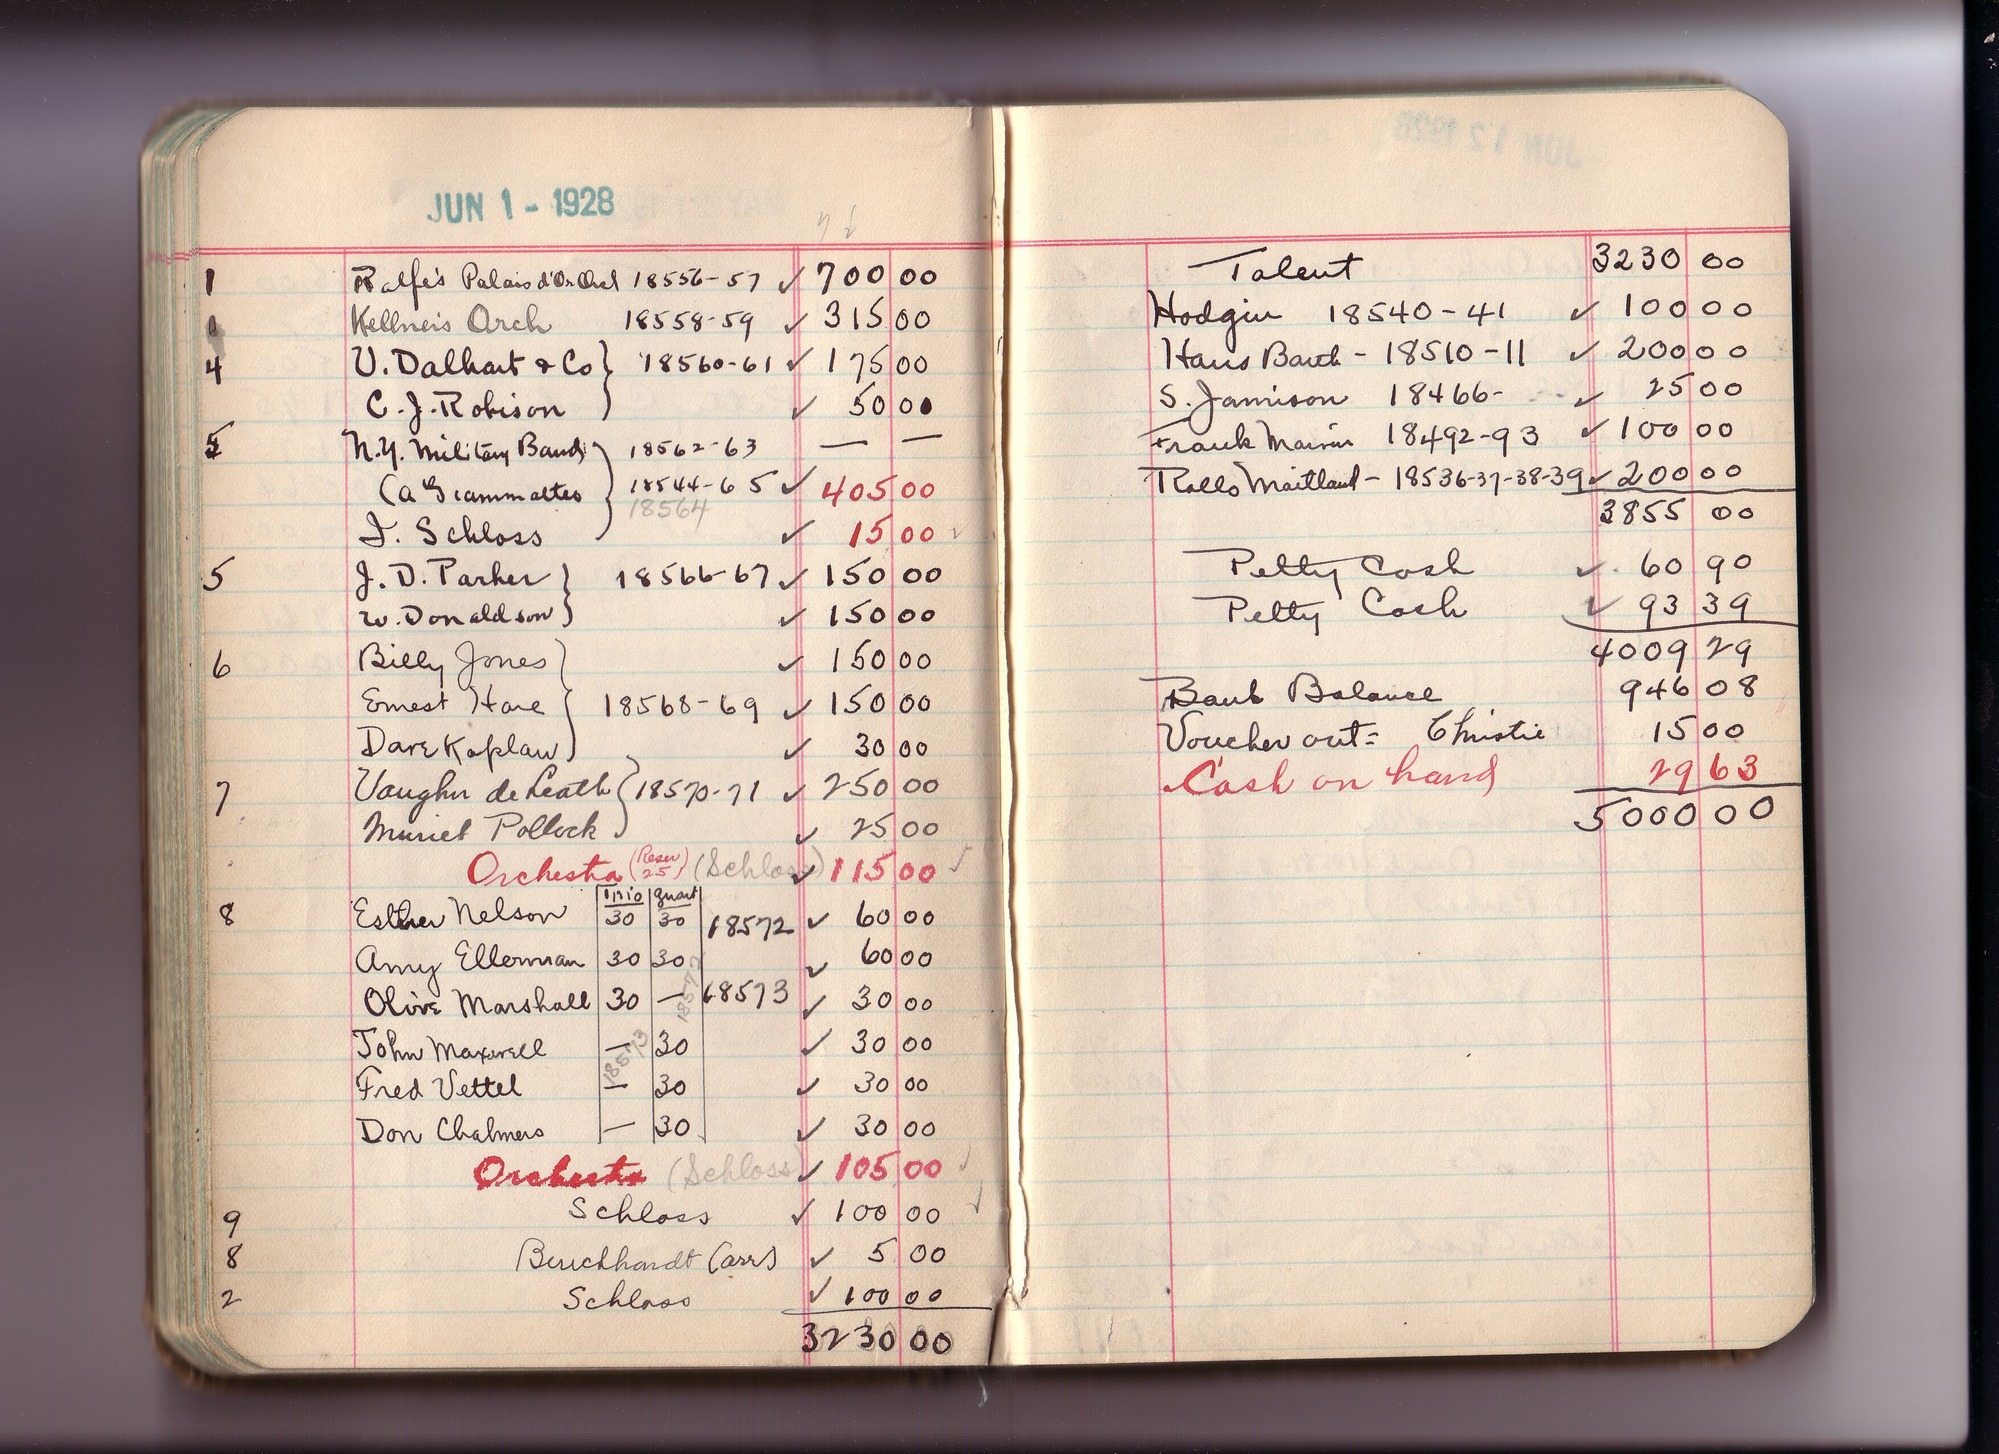 JUN 1 - 1928
1 Rolfe's Palais d'Or Orch 18556-57 ✓ 700 00
Kellner's Orch 18558-59 ✓ 315 00
4 V. Dalhart & Co } 18560-61 ✓ 175 00
C. J. Robison ✓ 50 00
N.Y. Military Band 18562-63 — —
(a Giammatteo 18544-65 ✓ 405 00
18564
I. Schloss ✓ 15 00
5 J. D. Parker } 18566-67 ✓ 150 00
W. Donaldson ✓ 150 00
6 Billy Jones ✓ 150 00
Ernest Hare } 18568-69 ✓ 150 00
Dave Kaplan ✓ 30 00
7 Vaughn de Leath } 18570-71 ✓ 250 00
Muriel Pollock ✓ 25 00
Orchestra (Reser 25) (Schloss) ✓ 115 00
Trio Quart
8 Esther Nelson 30 30 18572 ✓ 60 00
Amy Ellerman 30 30 ✓ 60 00
Olive Marshall 30 — 18573 ✓ 30 00
18572
John Maxwell — 30 ✓ 30 00
18573
Fred Vettel — 30 ✓ 30 00
Don Chalmers — 30 ✓ 30 00
Orchestra (Schloss) ✓ 105 00
9 Schloss ✓ 100 00
8 Burckhardt (arr) ✓ 5 00
2 Schloss ✓ 100 00
3230 00
JUN 12 1928
Talent 3230 00
Hodgin 18540-41 ✓ 100 00
Hans Barth - 18510-11 ✓ 200 00
S. Jamison 18466- ✓ 25 00
Frank 18492-93 ✓ 100 00
Rollo Maitland - 18536-37-38-39 ✓ 200 00
3855 00
Petty Cash ✓ 60 90
Petty Cash ✓ 93 39
4009 29
Bank Balance 946 08
Voucher out = Christie 15 00
Cash on hand 29 63
5000 00